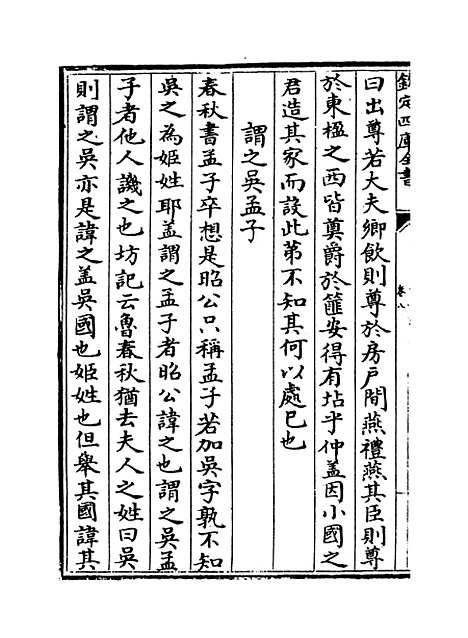 欽定四庫全書
卷八
曰出尊若大夫鄉飲則尊於房戶間燕禮燕其臣則尊
於東楹之西皆奠爵於篚安得有坫乎仲盖因小國之
君造其家而設此第不知其何以處已也
謂之吳孟子
春秋書孟子卒想是昭公只稱孟子若加吳字孰不知
吳之為姬姓耶盖謂之孟子者昭公諱之也謂之吳孟
子者他人譏之也坊記云魯春秋猶去夫人之姓曰吳
則謂之吳亦是諱之盖吳國也姬姓也但舉其國諱其